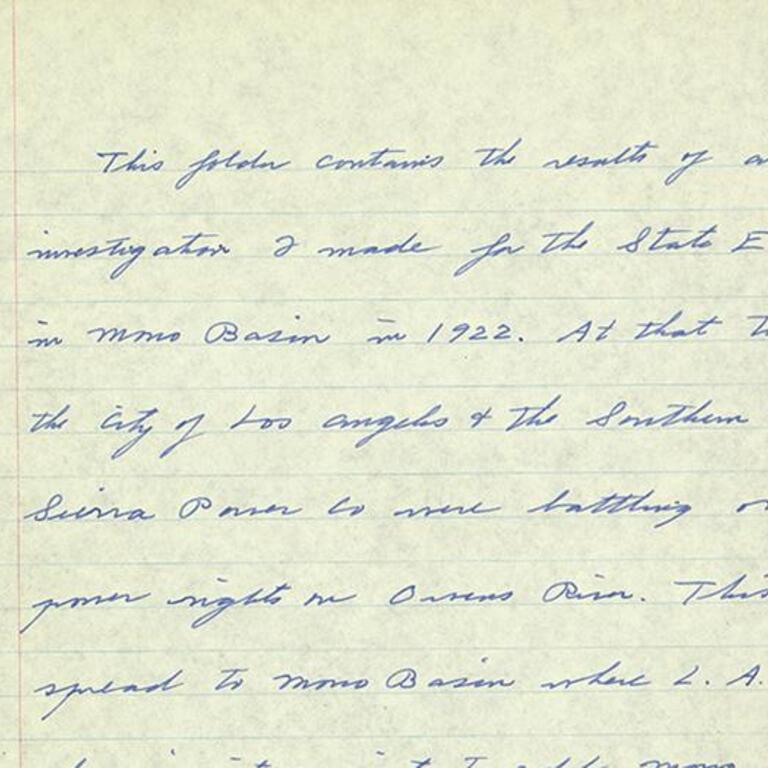 This folder contains the results of a
investigation I made for the State E
in Mono Basin in 1922. At that t
the City of Los Angeles & the Southern
Sierra Power Co were battling o
power rights on Owens River. This
spread to Mono Basin where L. A.